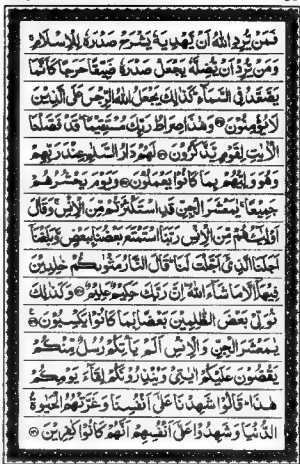 فَمَنْ يُّرِدِ اللّٰهُ اَنْ يَّهْدِيَهٗ يَشْرَحْ صَدْرَهٗ لِلْاِسْلَامِ ۚ
وَمَنْ يُّرِدْ اَنْ يُّضِلَّهٗ يَجْعَلْ صَدْرَهٗ ضَيِّقًا حَرَجًا كَاَنَّمَا
يَصَّعَّدُ فِى السَّمَآءِ ؕ كَذٰلِكَ يَجْعَلُ اللّٰهُ الرِّجْسَ عَلَى الَّذِيْنَ
لَا يُؤْمِنُوْنَ وَهٰذَا صِرَاطُ رَبِّكَ مُسْتَقِيْمًا ؕ قَدْ فَصَّلْنَا
الْاٰيٰتِ لِقَوْمٍ يَّذَّكَّرُوْنَ لَهُمْ دَارُ السَّلٰمِ عِنْدَ رَبِّهِمْ
وَهُوَ وَلِيُّهُمْ بِمَا كَانُوْا يَعْمَلُوْنَ وَيَوْمَ يَحْشُرُهُمْ
جَمِيْعًا ۚ يٰمَعْشَرَ الْجِنِّ قَدِ اسْتَكْثَرْتُمْ مِّنَ الْاِنْسِ ۚ وَقَالَ
اَوْلِيٰٓـؤُهُمْ مِّنَ الْاِنْسِ رَبَّنَا اسْتَمْتَعَ بَعْضُنَا بِبَعْضٍ وَّبَلَغْنَاۤ
اَجَلَنَا الَّذِىْۤ اَجَّلْتَ لَنَا ؕ قَالَ النَّارُ مَثْوٰىكُمْ خٰلِدِيْنَ
فِيْهَاۤ اِلَّا مَا شَآءَ اللّٰهُ ؕ اِنَّ رَبَّكَ حَكِيْمٌ عَلِيْمٌ وَكَذٰلِكَ
نُوَلِّىْ بَعْضَ الظّٰلِمِيْنَ بَعْضًا بِمَا كَانُوْا يَكْسِبُوْنَ
يٰمَعْشَرَ الْجِنِّ وَالْاِنْسِ اَلَمْ يَاْتِكُمْ رُسُلٌ مِّنْكُمْ
يَقُصُّوْنَ عَلَيْكُمْ اٰيٰتِىْ وَيُنْذِرُوْنَكُمْ لِقَآءَ يَوْمِكُمْ
هٰذَا ؕ قَالُوْا شَهِدْنَا عَلٰٓى اَنْفُسِنَا وَغَرَّتْهُمُ الْحَيٰوةُ
الدُّنْيَا وَشَهِدُوْا عَلٰٓى اَنْفُسِهِمْ اَنَّهُمْ كَانُوْا كٰفِرِيْنَ